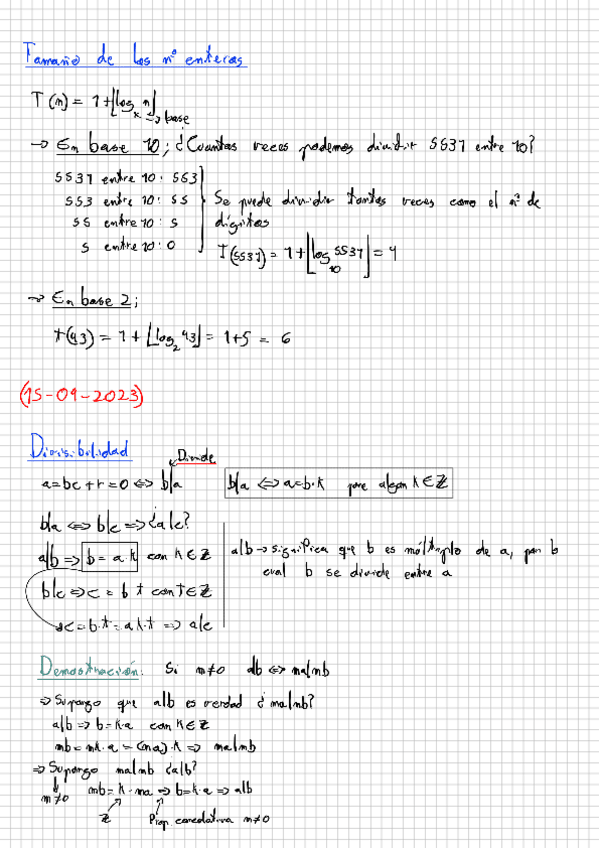 Tamaño de los nº enteros
T(n) = 1+⌊log_x n⌋
→ base
→ En base 10; ¿Cuantas veces podemos dividir 5537 entre 10?
5537 entre 10: 553
553 entre 10: 55
55 entre 10: 5
5 entre 10: 0
Se puede dividir tantas veces como el nº de
dígitos
T(5537) = 1+⌊log_10 5537⌋ = 4
→ En base 2;
T(43) = 1 + ⌊log_2 43⌋ = 1+5 = 6
(15-09-2023)
Divisibilidad
Divide
a=bc+r=0 ⇔ b|a
b|a ⇔ a=b·k para algun k∈ℤ
b|a ⇔ b|c ⇒ ¿a|c?
a|b ⇒ b = a·k con k∈ℤ
b|c ⇒ c = b·t con t∈ℤ
c=b·t=a·k·t ⇒ a|c
a|b → significa que b es múltiplo de a, por lo
cual b se divide entre a
Demostración: Si m≠0 a|b ⇔ ma|mb
⇒ Supongo que a|b es verdad ¿ma|mb?
a|b ⇒ b=k·a con k∈ℤ
mb = mk·a = (ma)·k ⇒ ma|mb
⇒ Supongo ma|mb ¿a|b?
m≠0 mb=k·ma ⇒ b=k·a ⇒ a|b
ℤ Prop. cancelativa m≠0